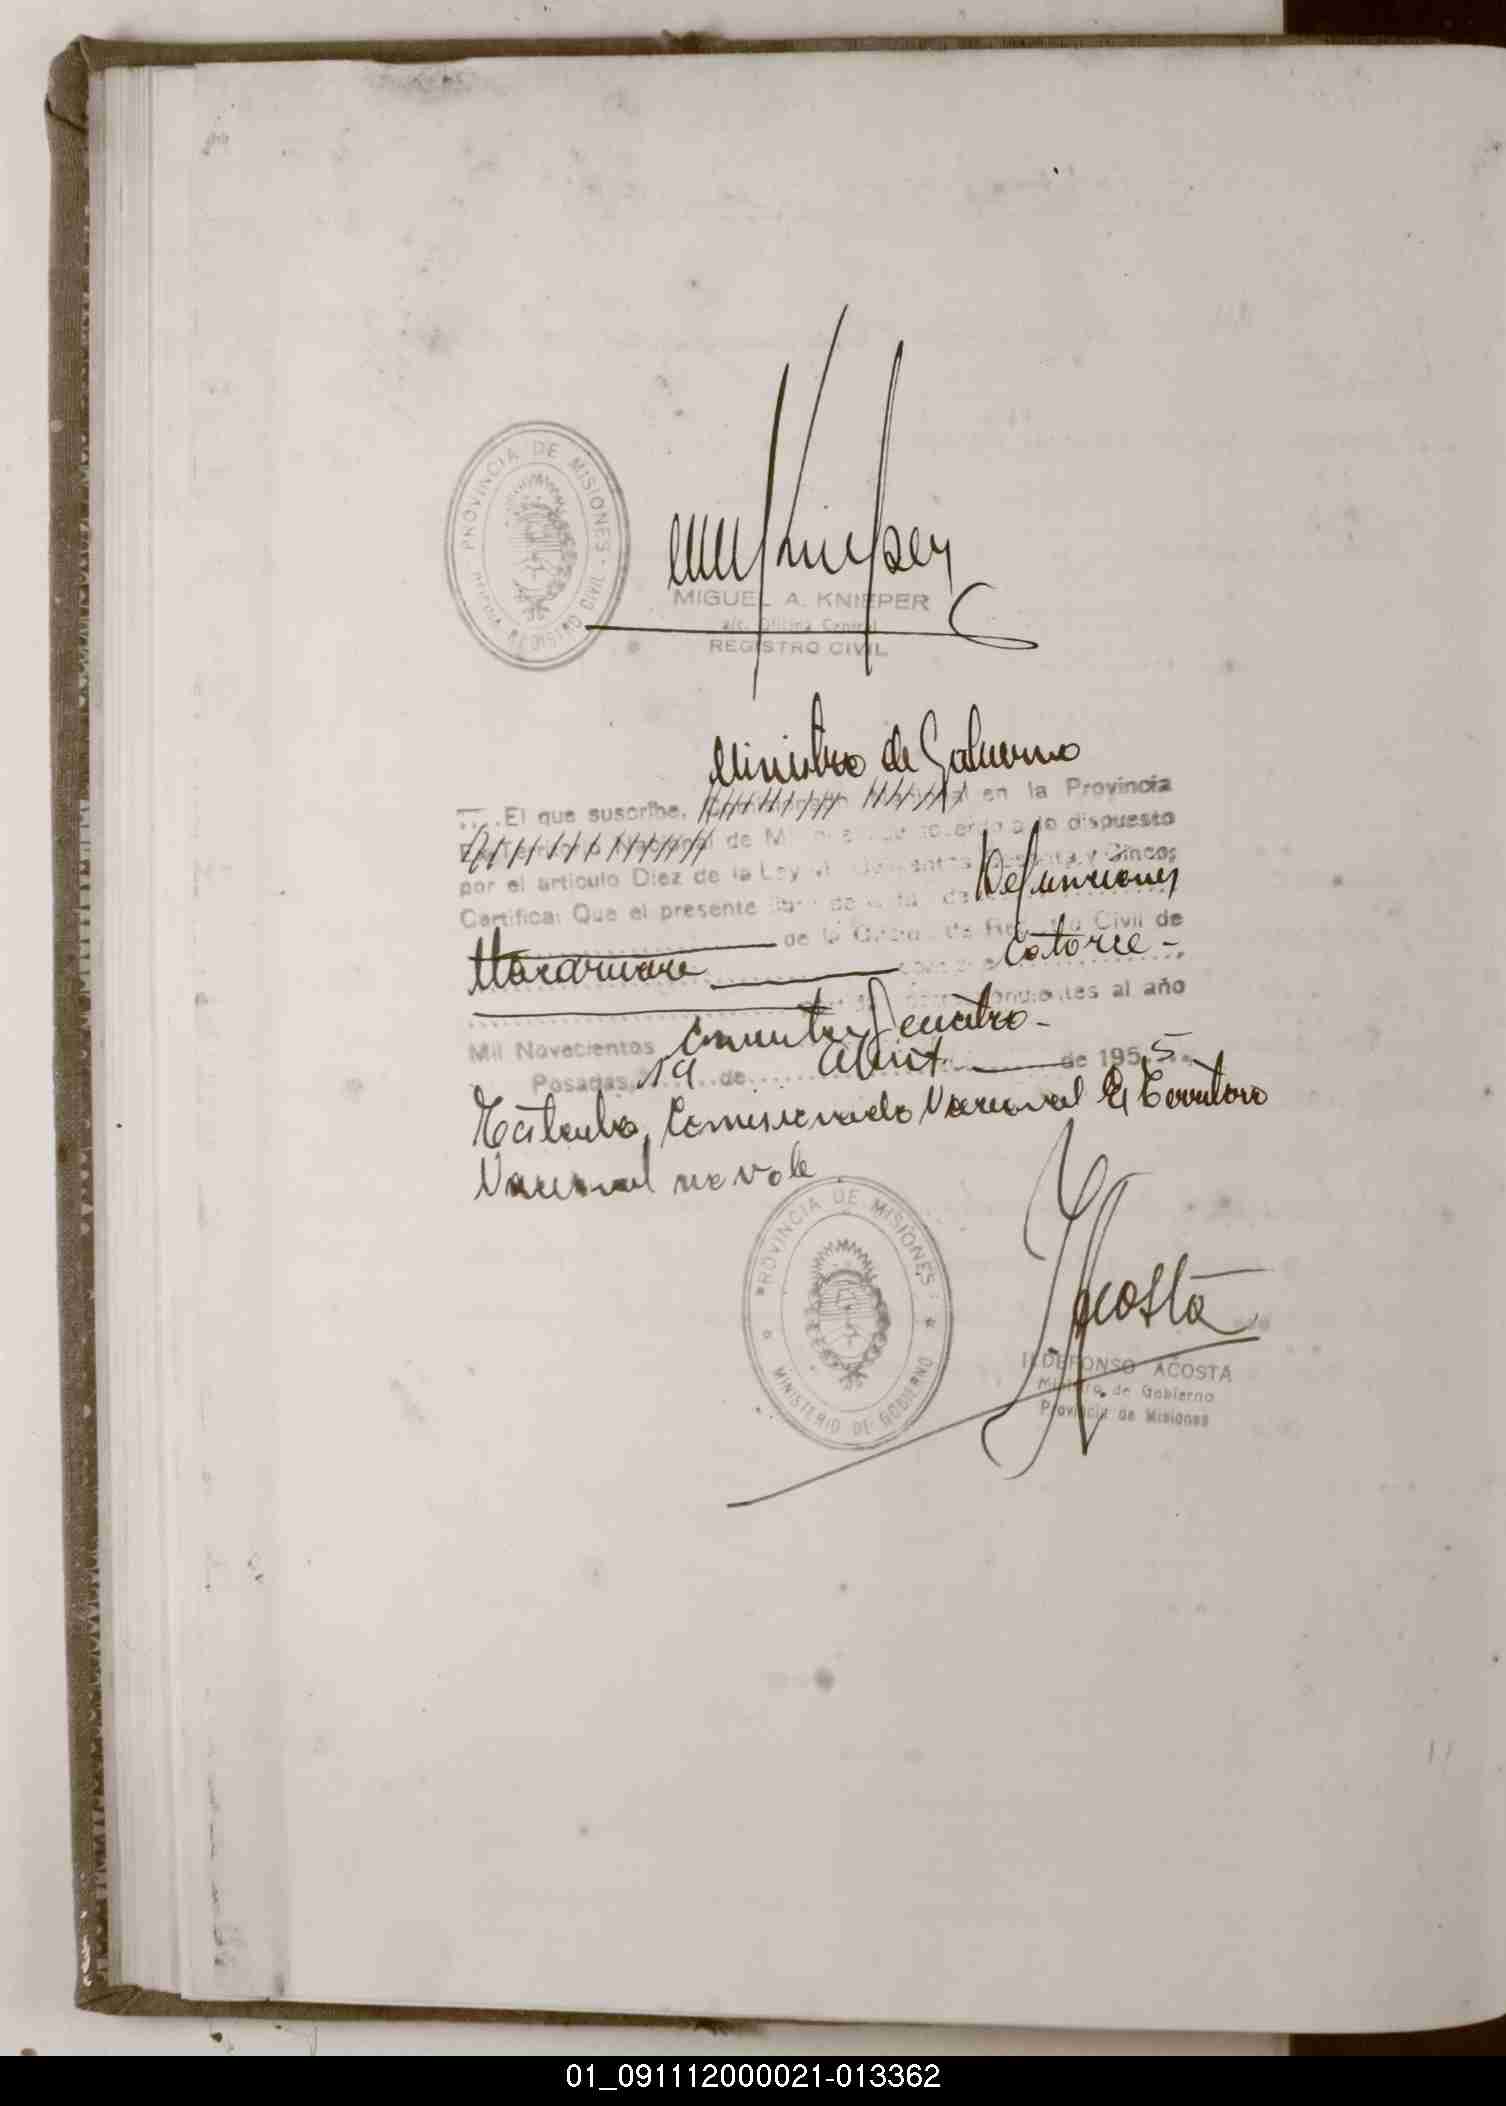 PROVINCIA DE MISIONES
REGISTRO CIVIL
MIGUEL A. KNIEPER
a/c. Oficina Central
REGISTRO CIVIL
Ministro de Gobierno
El que suscribe, en la Provincia
Territorio Nacional de dispuesto
por el artículo Diez de la Ley y Cinco;
Certifica: Que el presente de Defunciones
de la de Civil de
catorce -
al año
Mil Novecientos cincuenta y cuatro -
Posadas, 19 de Abril de 1955
Testado, Comisionado Nacional El Territorio
Nacional no vale
PROVINCIA DE MISIONES
MINISTERIO DE GOBIERNO
Acosta
ILDEFONSO ACOSTA
Ministro de Gobierno
Provincia de Misiones
01_091112000021-013362